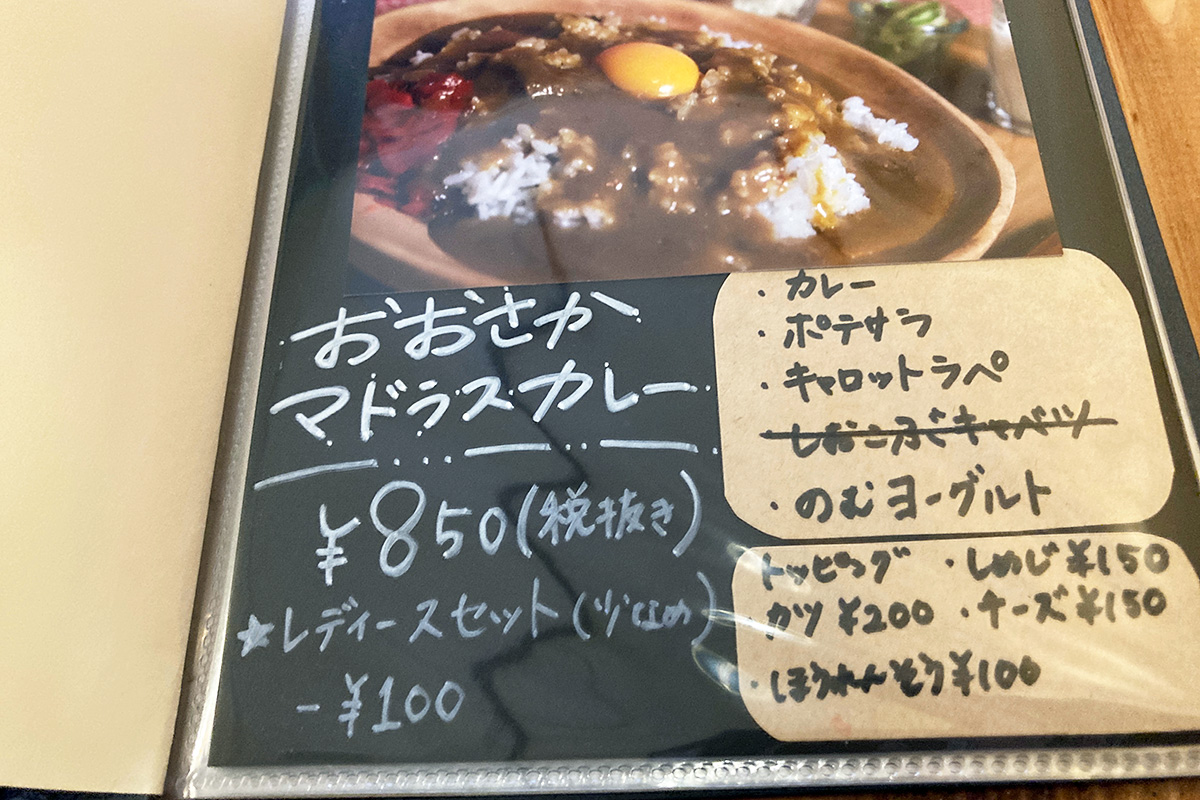 おおさか
マドラスカレー
¥850(税抜き)
★レディースセット(少なめ)
-¥100
・カレー
・ポテサラ
・キャロットラペ
・しおこぶキャベツ
・のむヨーグルト
トッピング ・しめじ¥150
・カツ¥200 ・チーズ¥150
・ほうれんそう¥100